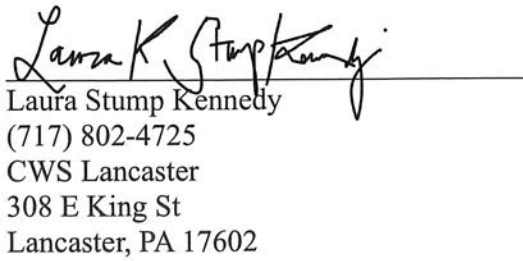 Laura K Stump Kennedy
Laura Stump Kennedy
(717) 802-4725
CWS Lancaster
308 E King St
Lancaster, PA 17602